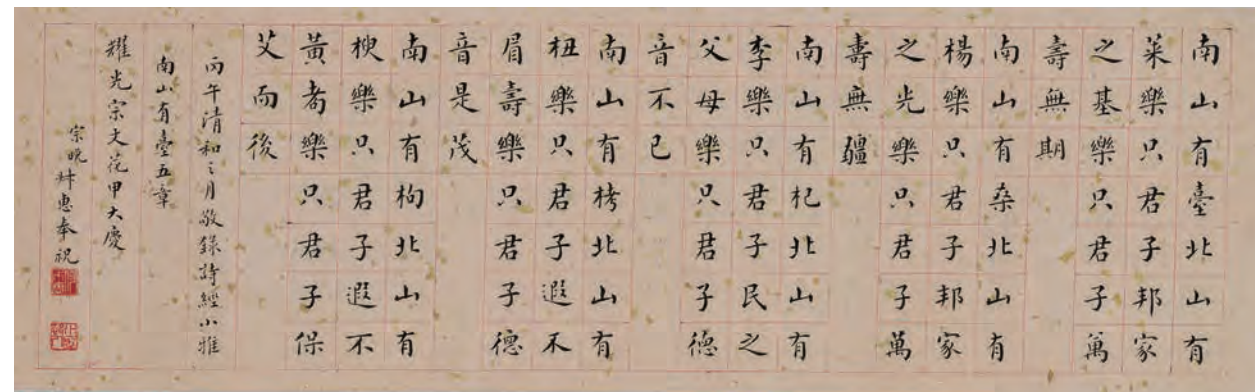 南山有臺北山有
萊樂只君子邦家
之基樂只君子萬
壽無期
南山有桑北山有
楊樂只君子邦家
之光樂只君子萬
壽無疆
南山有杞北山有
李樂只君子民之
父母樂只君子德
音不已
南山有栲北山有
杻樂只君子遐不
眉壽樂只君子德
音是茂
南山有枸北山有
楰樂只君子遐不
黃耇樂只君子保
艾而後
丙午清和之月敬錄詩經小雅
南山有臺五章
耀光宗丈花甲大慶
宗晚舜惠奉祝